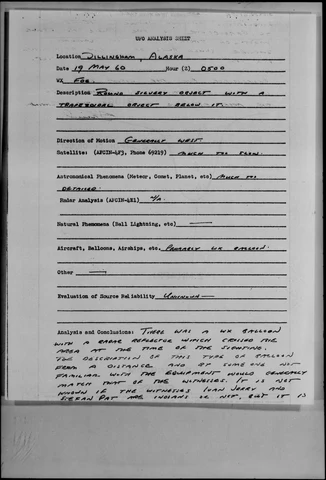 UFO ANALYSIS SHEET
Location Dillingham Alaska
Date 19 May 60 Hour (Z) 0500
WX Fog
Description Round silvery object with a
trapezoidal object below it.
Direction of Motion Generally West
Satellite: (AFCIN-4F3, Phone 69219) Much too slow.
Astronomical Phenomena (Meteor, Comet, Planet, etc) Much too
detailed.
Radar Analysis (AFCIN-4E1) N/A
Natural Phenomena (Ball Lightning, etc) —
Aircraft, Balloons, Airships, etc. Probably WX balloon
Other —
Evaluation of Source Reliability Unknown
Analysis and Conclusions: There was a WX balloon
with a radar reflector which crossed the
area at the time of the sighting.
The description of this type of balloon
from a distance and by someone not
familiar with the equipment would generally
match that of the witnesses. It is not
known if the witnesses Ivan Jerry and
Stepan Pat are Indians or not, but it is